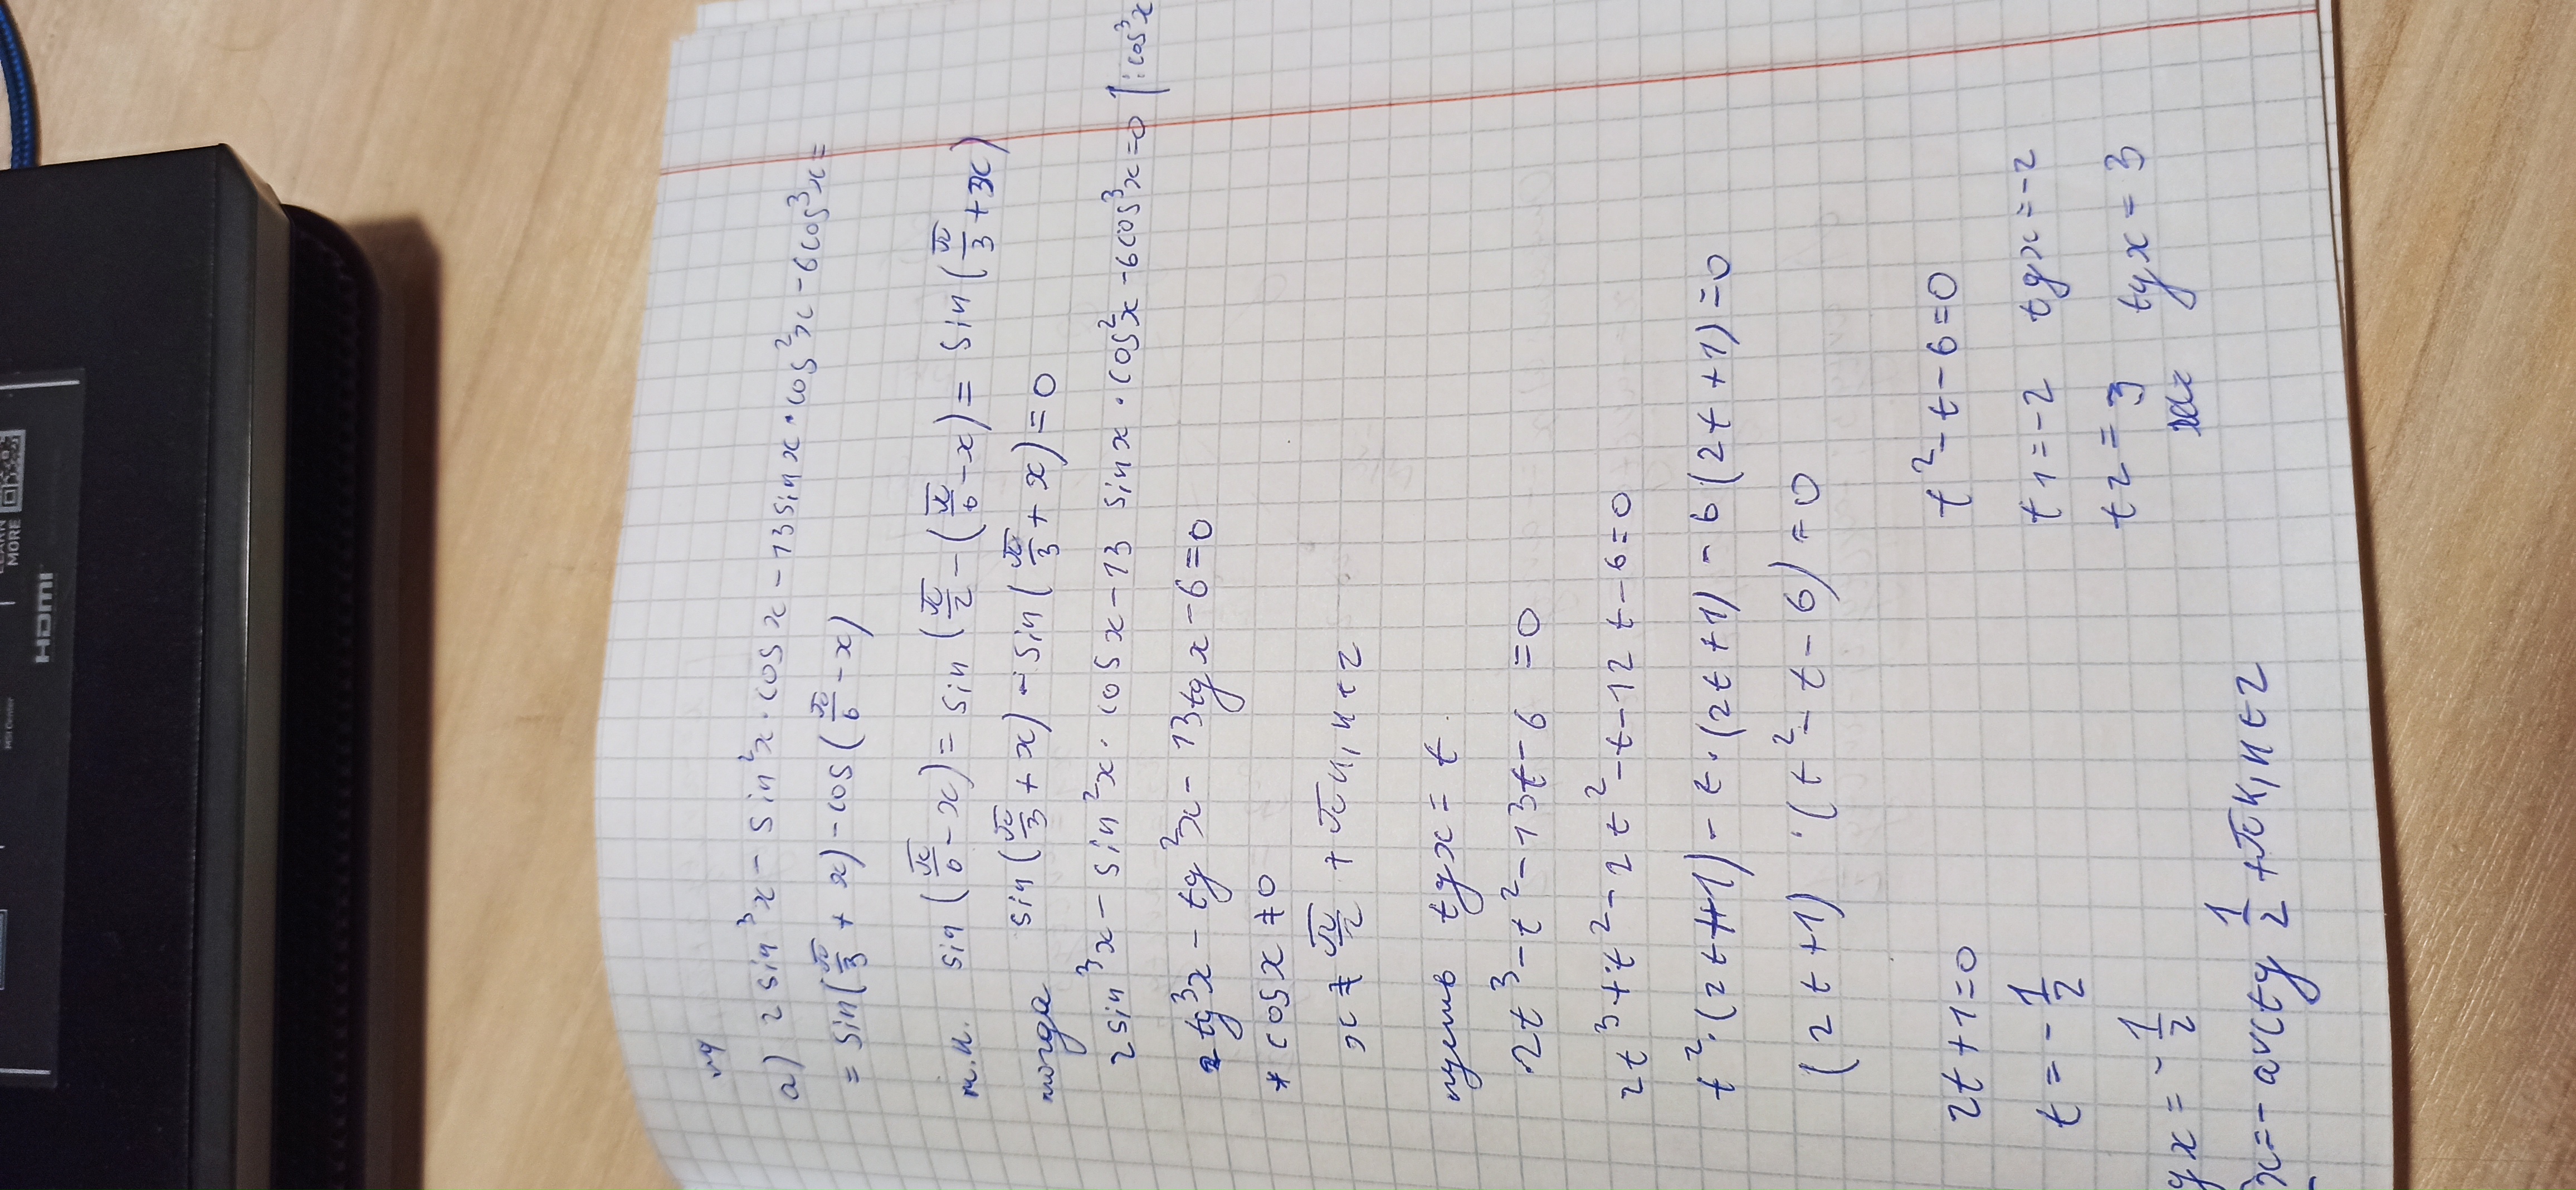 MSI Center
MORE
HDMI
№4
a) 2 sin³x - sin²x · cosx - 13 sinx · cos²x - 6cos³x =
= sin(π/3 + x) - cos(π/6 - x)
т.к. sin(π/6 - x) = sin(π/2 - (π/6 - x) = sin(π/3 + x)
тогда sin(π/3 + x) - sin(π/3 + x) = 0
2sin³x - sin²x · cosx - 13 sinx · cos²x - 6cos³x = 0 |: cos³x
2tg³x - tg²x - 13tgx - 6 = 0
* cosx ≠ 0
x ≠ π/2 + πn, n ∈ Z
пусть tgx = t
2t³ - t² - 13t - 6 = 0
2t³ + t² - 2t² - t - 12t - 6 = 0
t² · (2t + 1) - t · (2t + 1) - 6(2t + 1) = 0
(2t + 1) · (t² - t - 6) = 0
2t + 1 = 0 t² - t - 6 = 0
t = -1/2 t1 = -2 tgx = -2
t2 = 3 tgx = 3
gx = -1/2
x = - arctg 1/2 + πn, n ∈ Z